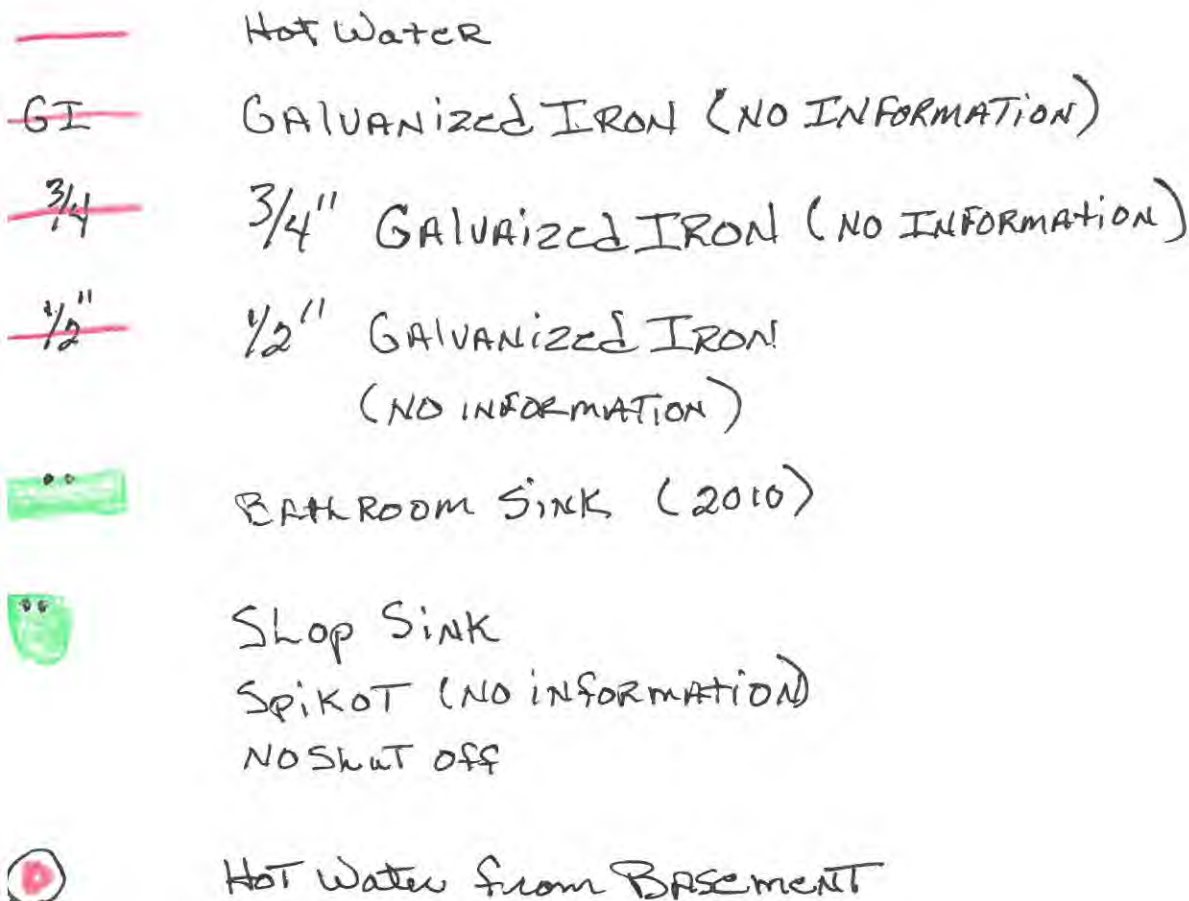 Hot Water
GI GALVANized IRON (NO INFORMATION)
3/4 3/4" GALVAized IRON (NO INFORMATION)
1/2" 1/2" GALVANized IRON
(NO INFORMATION)
BATHROOM SINK (2010)
SLOP SINK
SPIKOT (NO INFORMATION)
NO SHUT OFF
HOT Water from BASEMENT